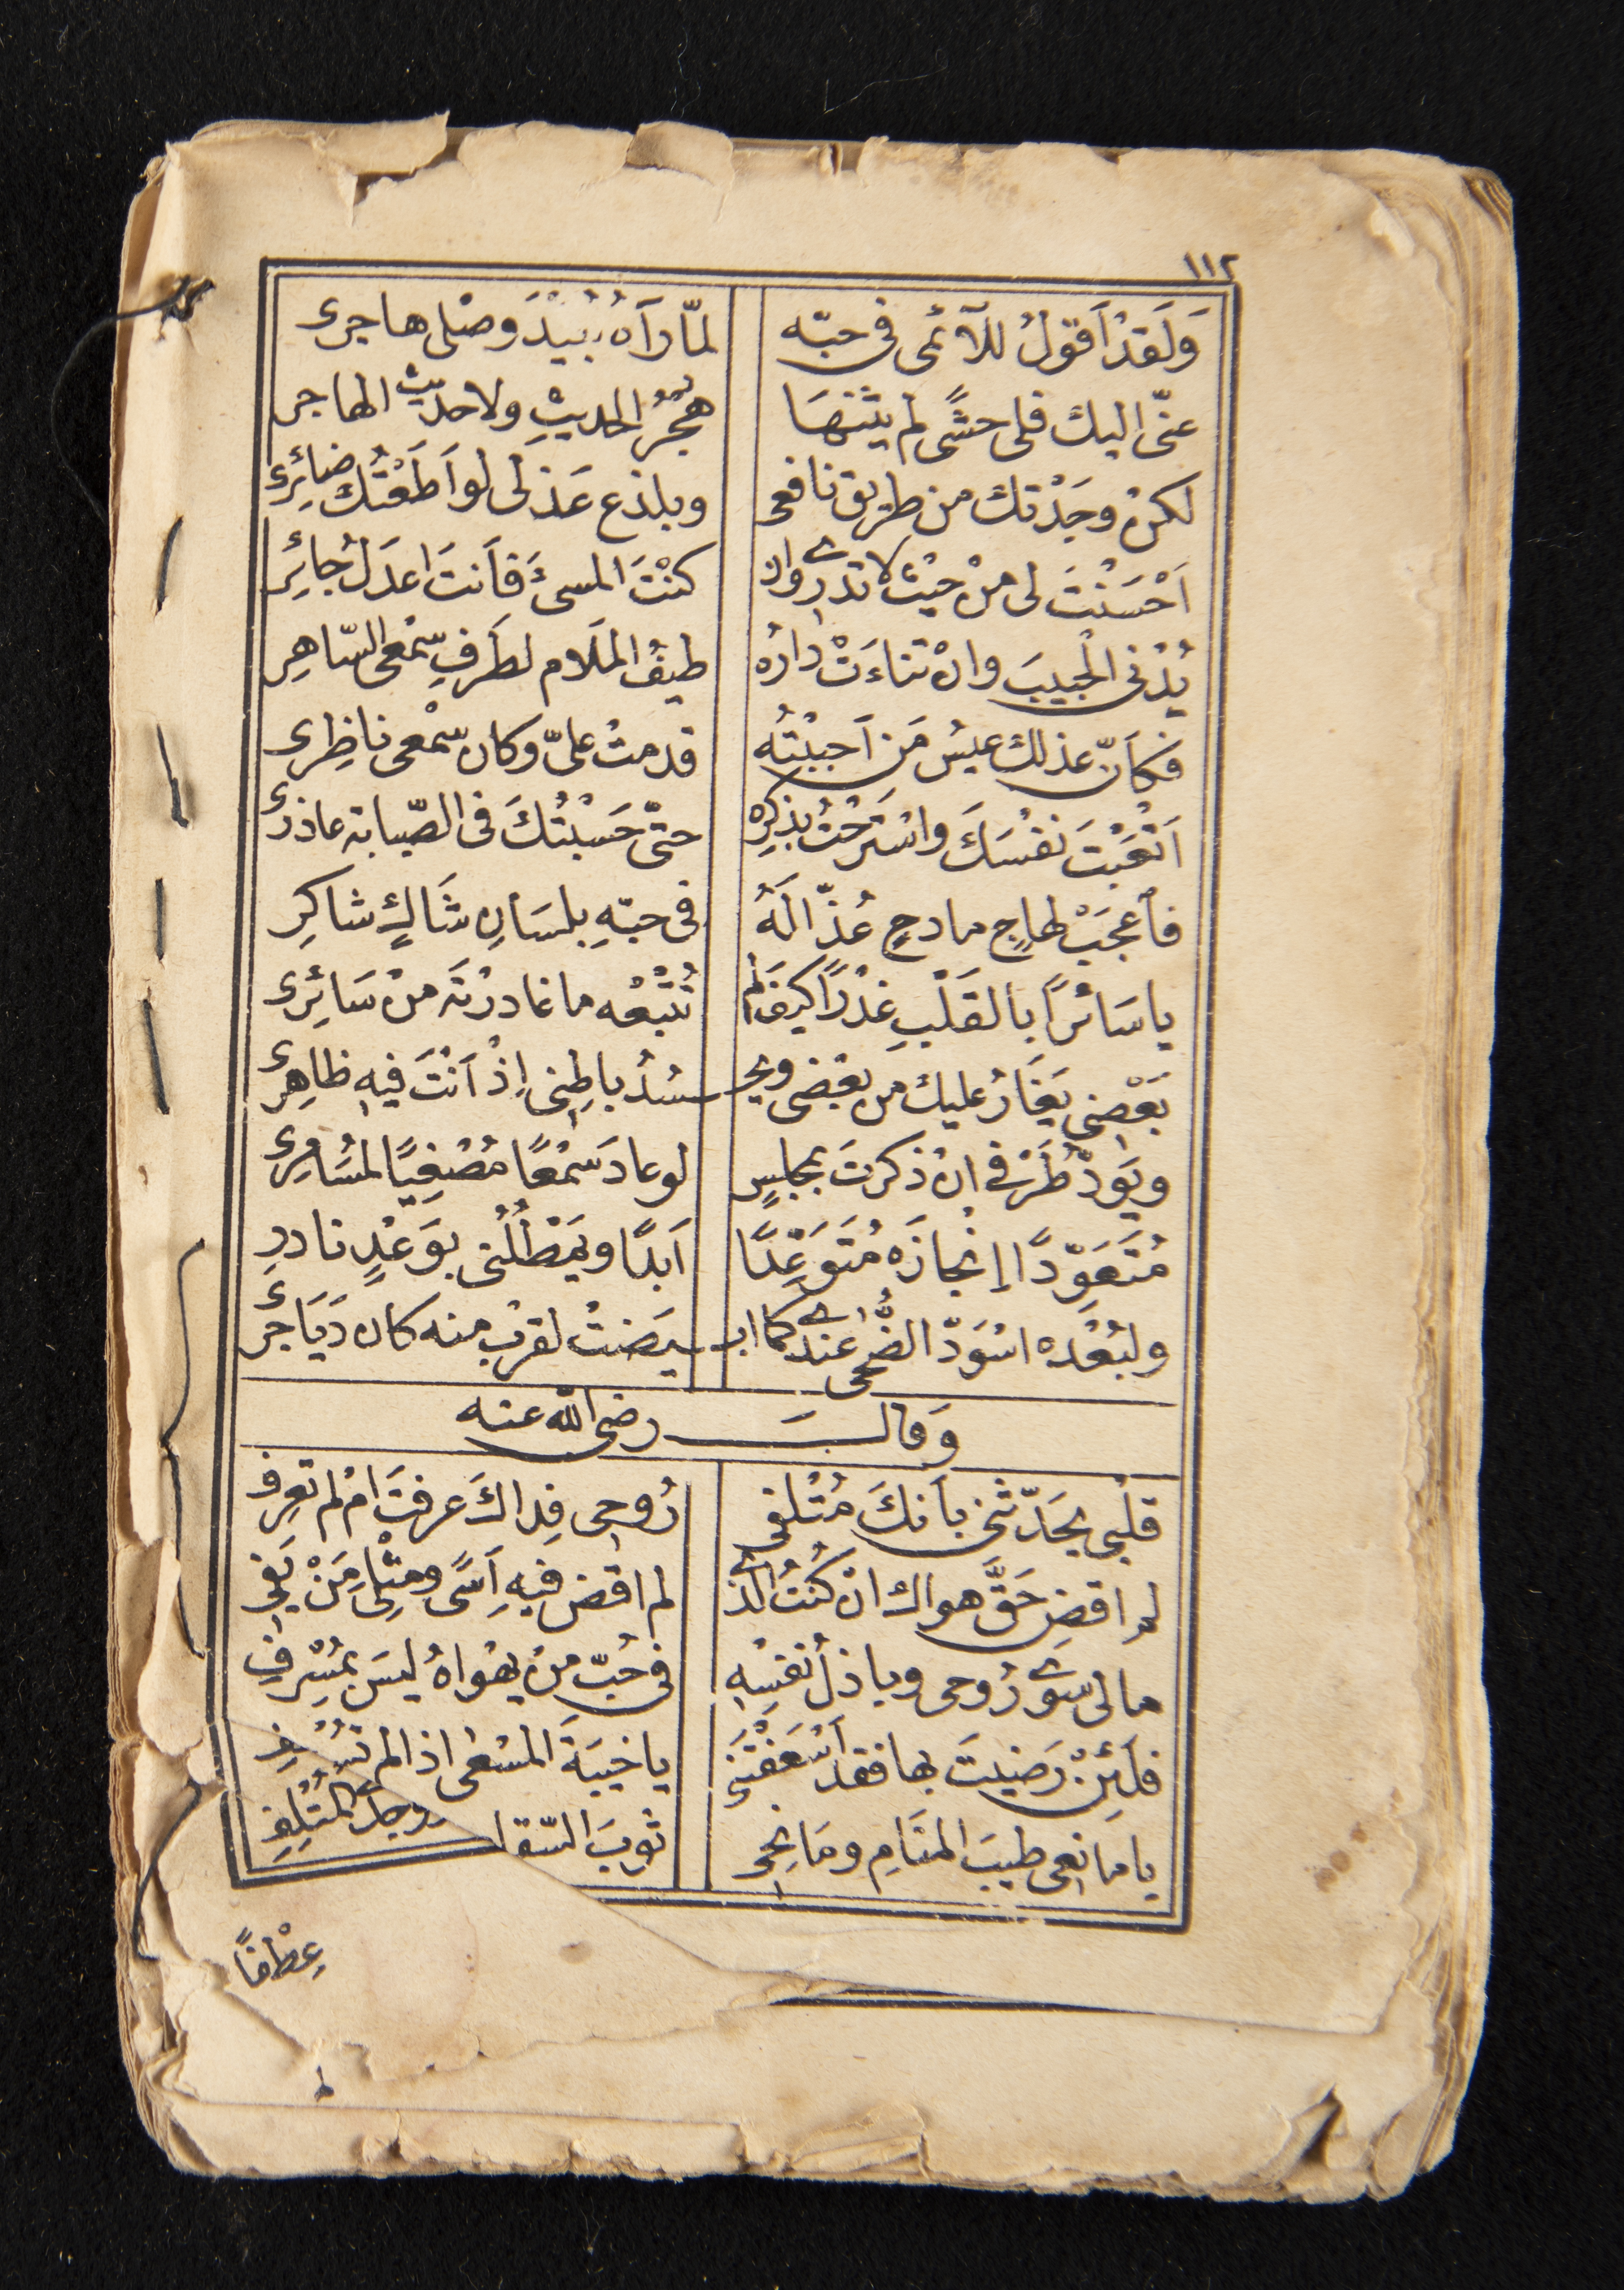 ١١٢
وَلَقَدْ اَقولُ للآئمى فى حبّه لمّا رَآهُ بُعَيْدَ وصْلى هاجرى
عنّى اليك فلى حشًى لم يثنهَا هُجْرُ الحديثِ ولا حديث الهاجر
لكنْ وجَدْتك من طريق نافعى وبلذع عَذلى لو اَطَعْتُكَ ضائرى
اَحْسَنْتَ لى منْ حيْث لا تدرى وان كنْتَ المسىَٔ فاَنتَ اعدَلُ جائِرِ
يُدْنى الْحبيبَ وانْ تناءَتْ دارُه طيفُ المَلام لطَرفِ سمْعى السّاهِرِ
فكاَنّ عذلكَ عيسُ مَن اَحببْتُه قدمتْ علىّ وكان سمْعى ناظِرى
اَتْعَبْتَ نفْسَكَ واسْتَرحْتُ بذكرِه حتّى حَسبْتُكَ فى الصّبابة عاذرى
فاعجَبْ لهاجٍ مادحٍ عُذّالَهُ فى حبّهِ بلسَانِ شَاكٍ شاكِرِ
يا سَائرًا بالقَلْبِ غدْرًا كيفَ لم تُتْبعْه ما غادرْتَه منْ سَائِرى
بَعْضى يَغَارُ عليك من بعْضى ويحـ ـسُدُ باطِنى اِذْ اَنْتَ فيهِ ظاهِرى
ويَودّ طَرْفى انْ ذكرتَ بمجلسٍ لو عادَ سَمْعًا مُصْغِيًا لمُسَامِرى
مُتَعَوّدًا اِنْجازَه مُتَوَعّدًا اَبدًا ويَمْطُلُنى بوَعْدٍ نادرِ
ولبُعْدِه اسْوَدّ الضُّحى عندى كما ابـ ـيضتْ لقربٍ منه كان دَيَاجرى
وَقالــــَ رضى الله عنه
قلْبى يحَدّثنى باَنكَ مُتْلفى رُوحى فِداكَ عرفتَ امْ لم تعرِف
لم اقضِ حَقَّ هواكَ ان كنْتُ الذى لم اقض فيهِ اَسًى ومثْلى مَنْ يَفى
مالى سوَى رُوحى وباذلُ نفسِهِ فى حُبّ منْ يهْواهُ ليسَ بمُسْرِفِ
فلَئِنْ رَضيتَ بها فقد اَسْعَفْتَنى يا خيبَةَ المسْعى اذا لم تُسْعف
يا مَانعى طيبَ المنَامِ ومَانحى ثوبَ السّقا المتْلِفِ
عطْفًا